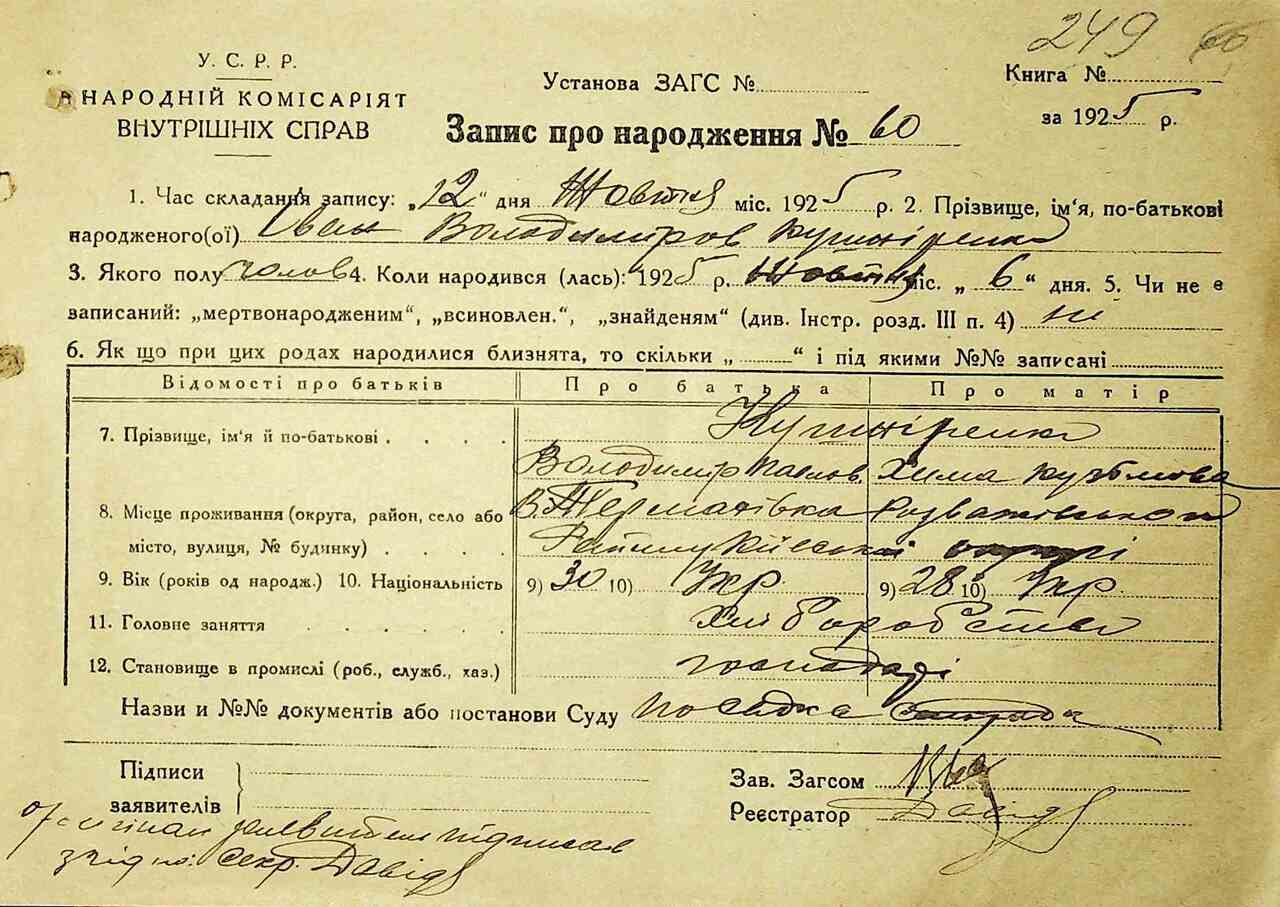 249
У. С. Р. Р.
НАРОДНІЙ КОМІСАРІЯТ
ВНУТРІШНІХ СПРАВ
Установа ЗАГС №
Книга №
за 1925 р.
Запис про народження № 60
1. Час складання запису: „12" дня Жовтня міс. 1925 р. 2. Прізвище, ім'я, по-батькові
народженого(ої) Іван Володимиров Кушніренко
3. Якого полу чолов 4. Коли народився (лась): 1925 р. Жовтня міс. „ 6 " дня. 5. Чи не є
записаний: „мертвонародженим", „всиновлен.", „знайденям" (див. Інстр. розд. III п. 4) ні
6. Як що при цих родах народилися близнята, то скільки „ " і під якими №№ записані
Відомості про батьків Про батька Про матір
7. Прізвище, ім'я й по-батькові Кушніренко
Володимир Павлов. Хима Кузьмова
8. Місце проживання (округа, район, село або В. Термахівка Розважівського
місто, вулиця, № будинку) Району Київської
9. Вік (років од народж.) 10. Національність 9) 30 10) Укр. 9) 28 10) Укр.
11. Головне заняття Хліборобство
12. Становище в промислі (роб., служб., хаз.) господарі
Назви и №№ документів або постанови Суду
Підписи
заявителів
Зав. Загсом
Реєстратор Давид
підписав
згідно: Секр. Давид